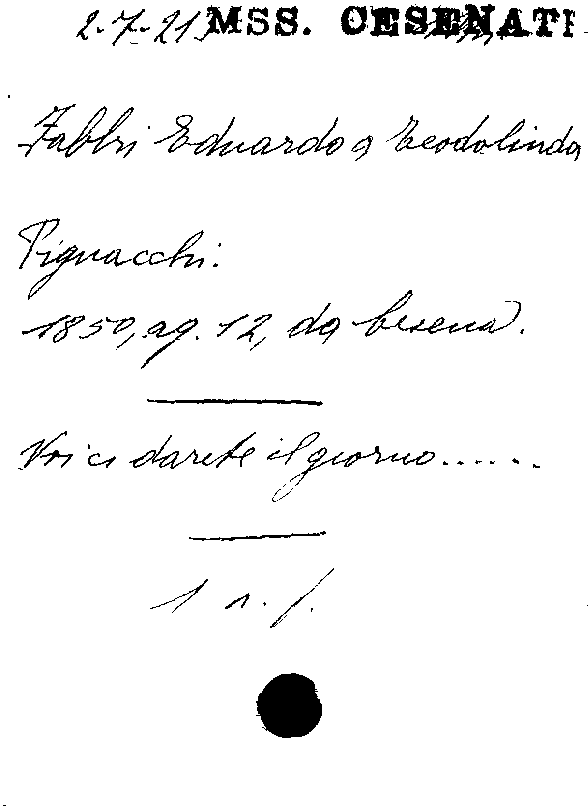 2-7-21) MSS. CESENATI
Fabbri Eduardo a Teodolinda
Pignacchi.
1850, ag. 12, da Cesena.
Voi ci darete il giorno......
1 n. f.